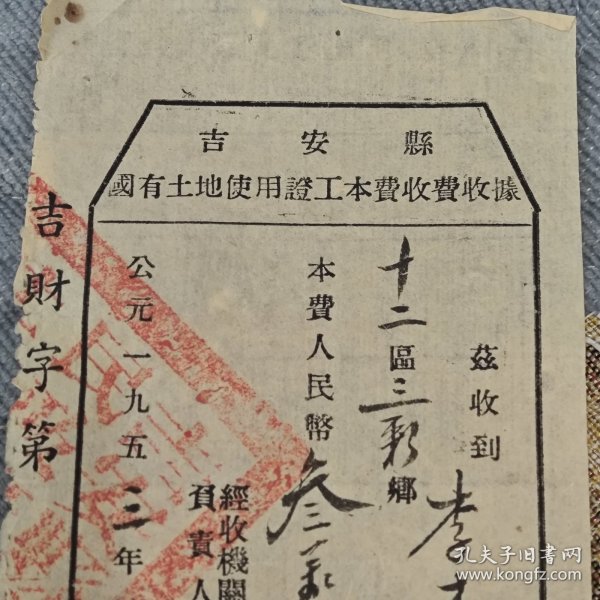 吉安縣
國有土地使用證工本費收費收據
茲收到李
十二區三彩鄉
本費人民幣叁
經收機關
負責人
公元一九五三年
吉財字第
孔夫子旧书网
www.kongfz.com